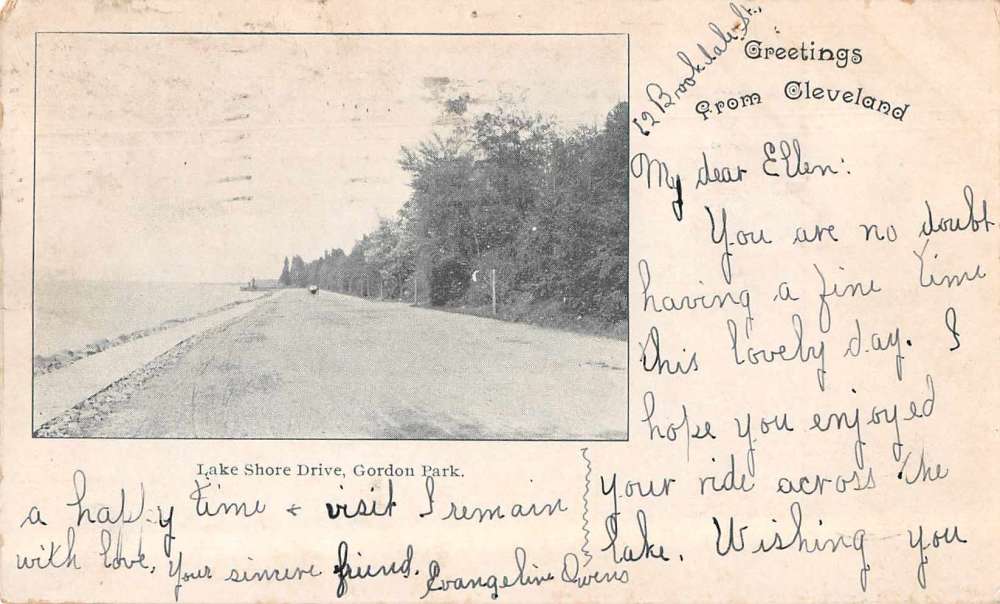 Greetings
From Cleveland
12 Brookdale St.,
My dear Ellen:
You are no doubt
having a fine time
this lovely day. I
hope you enjoyed
your ride across the
lake. Wishing you
Lake Shore Drive, Gordon Park.
a happy time & visit I remain
with love, Your sincere friend. Evangeline Owens